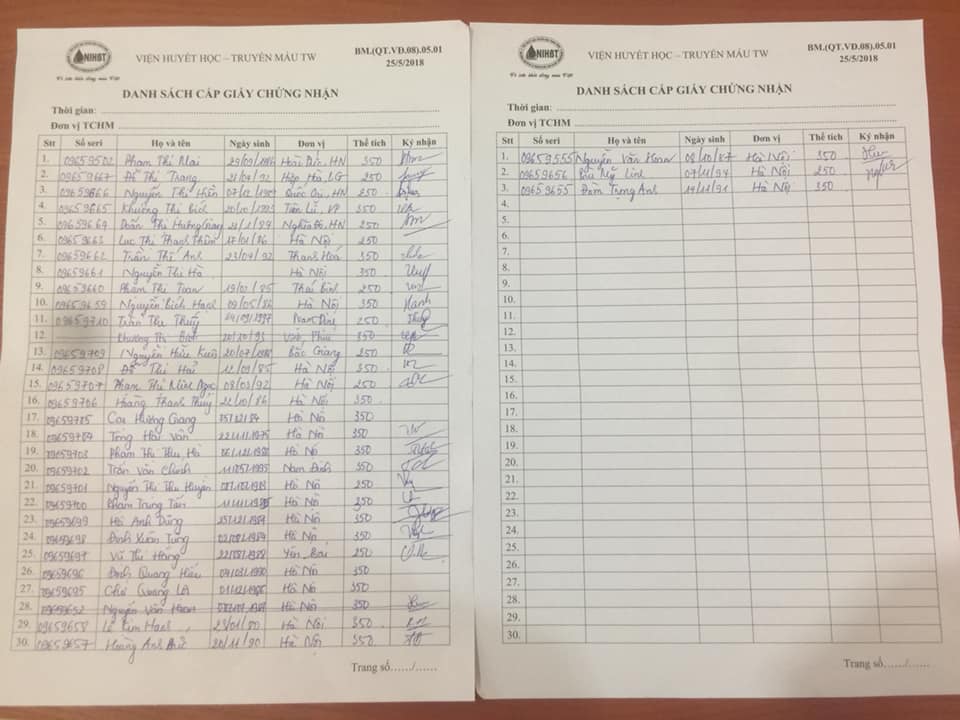 NIHBT
VIỆN HUYẾT HỌC – TRUYỀN MÁU TW
BM.(QT.VĐ.08).05.01
25/5/2018
DANH SÁCH CẤP GIẤY CHỨNG NHẬN
Thời gian:
Đơn vị TCHM
Stt Số seri Họ và tên Ngày sinh Đơn vị Thể tích Ký nhận
1. 09659502 Phạm Thị Mai HN 350
2. 09659667 Đỗ Thị Trang 21/04/92 Hiệp Hòa, BG 250
3. 09659666 Nguyễn Thị Hiền HN 250
4. 09659665 Khương Thị Bích 20/10/1993 350
5. 09659664 Doãn Thị Hương Giang HN 250
6. 09659663 Lục Thị Thanh Thìn 17/01/86 Hà Nội 250
7. 09659662 Trần Thị Anh 23/04/92 Thanh Hoá 250
8. 09659661 Nguyễn Thị Hà Hà Nội 350
9. 09659660 Phạm Thị Toan 19/01/85 Thái Bình 250
10. 09659659 Nguyễn Bích Hạnh 09/05/86 Hà Nội 350 Hạnh
11. 09659710 Trần Thị Thuý Nam Định 250
12. Khương Thị Bích 20/10/93 350
13. 09659709 Nguyễn Hữu 20/07/ Bắc Giang 250
14. 09659708 Đỗ Thị Hải 12/09/85 Hà Nội 350
15. 09659707 Phạm Thị Ngọc 08/03/92 Hà Nội 250
16. 09659706 Hoàng Thanh Thuý /10/86 Hà Nội 350
17. 09659705 Cao Hương Giang Hà Nộ 350
18. 09659704 Tống Hải Vân Hà Nộ 350
19. 09659703 Phạm Thị Thu Hà Hà Nộ 350
20. 09659702 Trần Văn Chinh Nam Định 350
21. 09659701 Nguyễn Thị Thu Huyền Hà Nộ 350
22. 09659700 Phạm Trung Hà Nộ 250
23. 09659699 Hồ Anh Dũng Hà Nộ 350
24. 09659698 Đinh Xuân Tùng Hà Nộ 350
25. 09659697 Vũ Thị Hằng Yên Bái 250
26. 09659696 Đinh Quang Hiếu Hà Nộ 350
27. 09659695 Quang Hà Nộ 350
28. Nguyễn Văn Hà Nộ 350
29. 09659658 Lê Kim Hạnh 23/01/80 Hà Nội 350
30. 09659657 Hoàng Anh Đức 20/11/90 Hà Nội 350
Trang số....../......
NIHBT
VIỆN HUYẾT HỌC – TRUYỀN MÁU TW
BM.(QT.VĐ.08).05.01
25/5/2018
DANH SÁCH CẤP GIẤY CHỨNG NHẬN
Thời gian:
Đơn vị TCHM
Stt Số seri Họ và tên Ngày sinh Đơn vị Thể tích Ký nhận
1. 09659555 Nguyễn Văn Hoan 08/10/87 Hà Nội 350
2. 09659656 Bùi Mỹ Linh 07/11/94 Hà Nội 250
3. 09659655 Đàm Trọng Anh 19/11/91 Hà Nội 350
4.
5.
6.
7.
8.
9.
10.
11.
12.
13.
14.
15.
16.
17.
18.
19.
20.
21.
22.
23.
24.
25.
26.
27.
28.
29.
30.
Trang số....../......